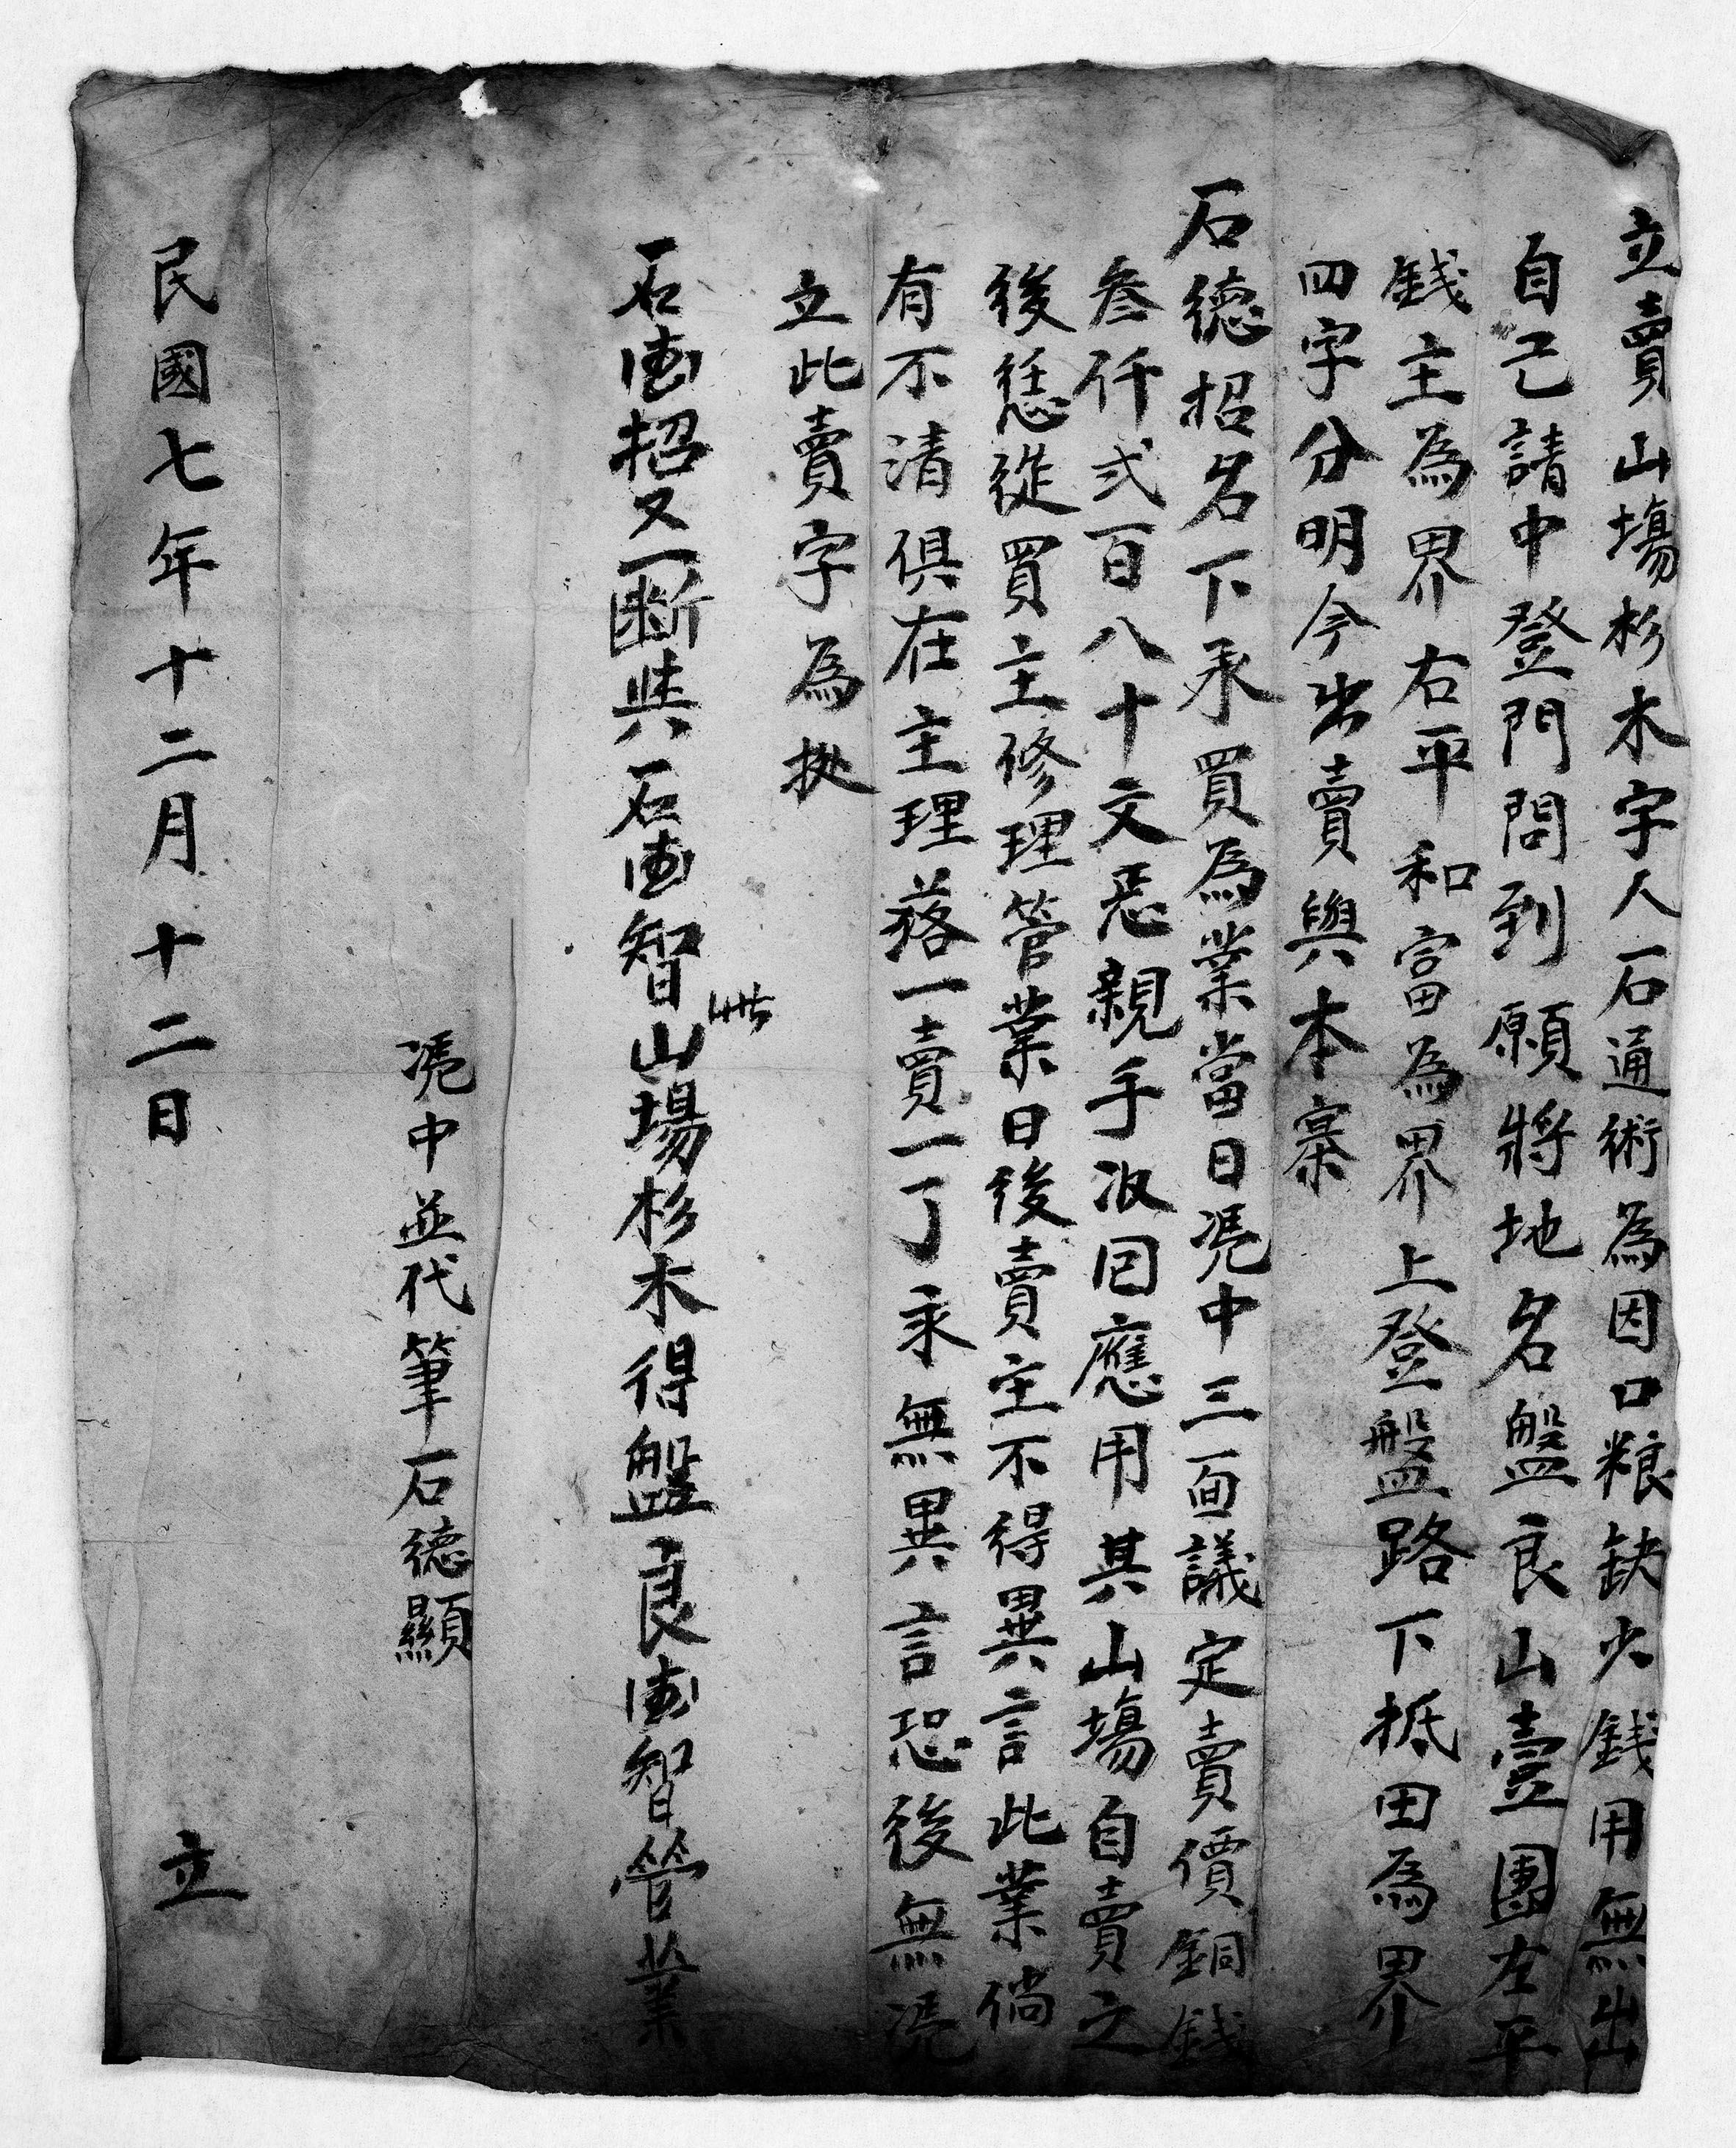 立賣山塲杉木字人石通術為因口粮缺少錢用無出
自己請中登門問到願將地名盤良山壹團左平
錢主為界右平和富為界上登盤路下抵田為界
四字分明今出賣與本寨
石德招名下承買為業當日凴中三面議定賣價銅錢
叁仟弍百八十文恁親手汲囬應用其山塲自賣之
後恁從買主修理管業日後賣主不得異言此業倘
有不清俱在主理落一賣一了永無異言恐後無凴
立此賣字為㨿
石德招又断與石德智此山場杉木得盤良德智管業
凴中並代筆石德顯
民國七年十二月十二日 立